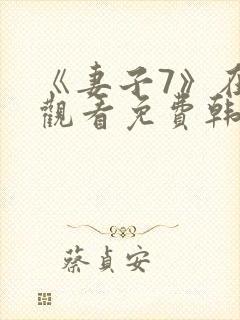 《妻子7》在
觀看免費韓
蔡貞安